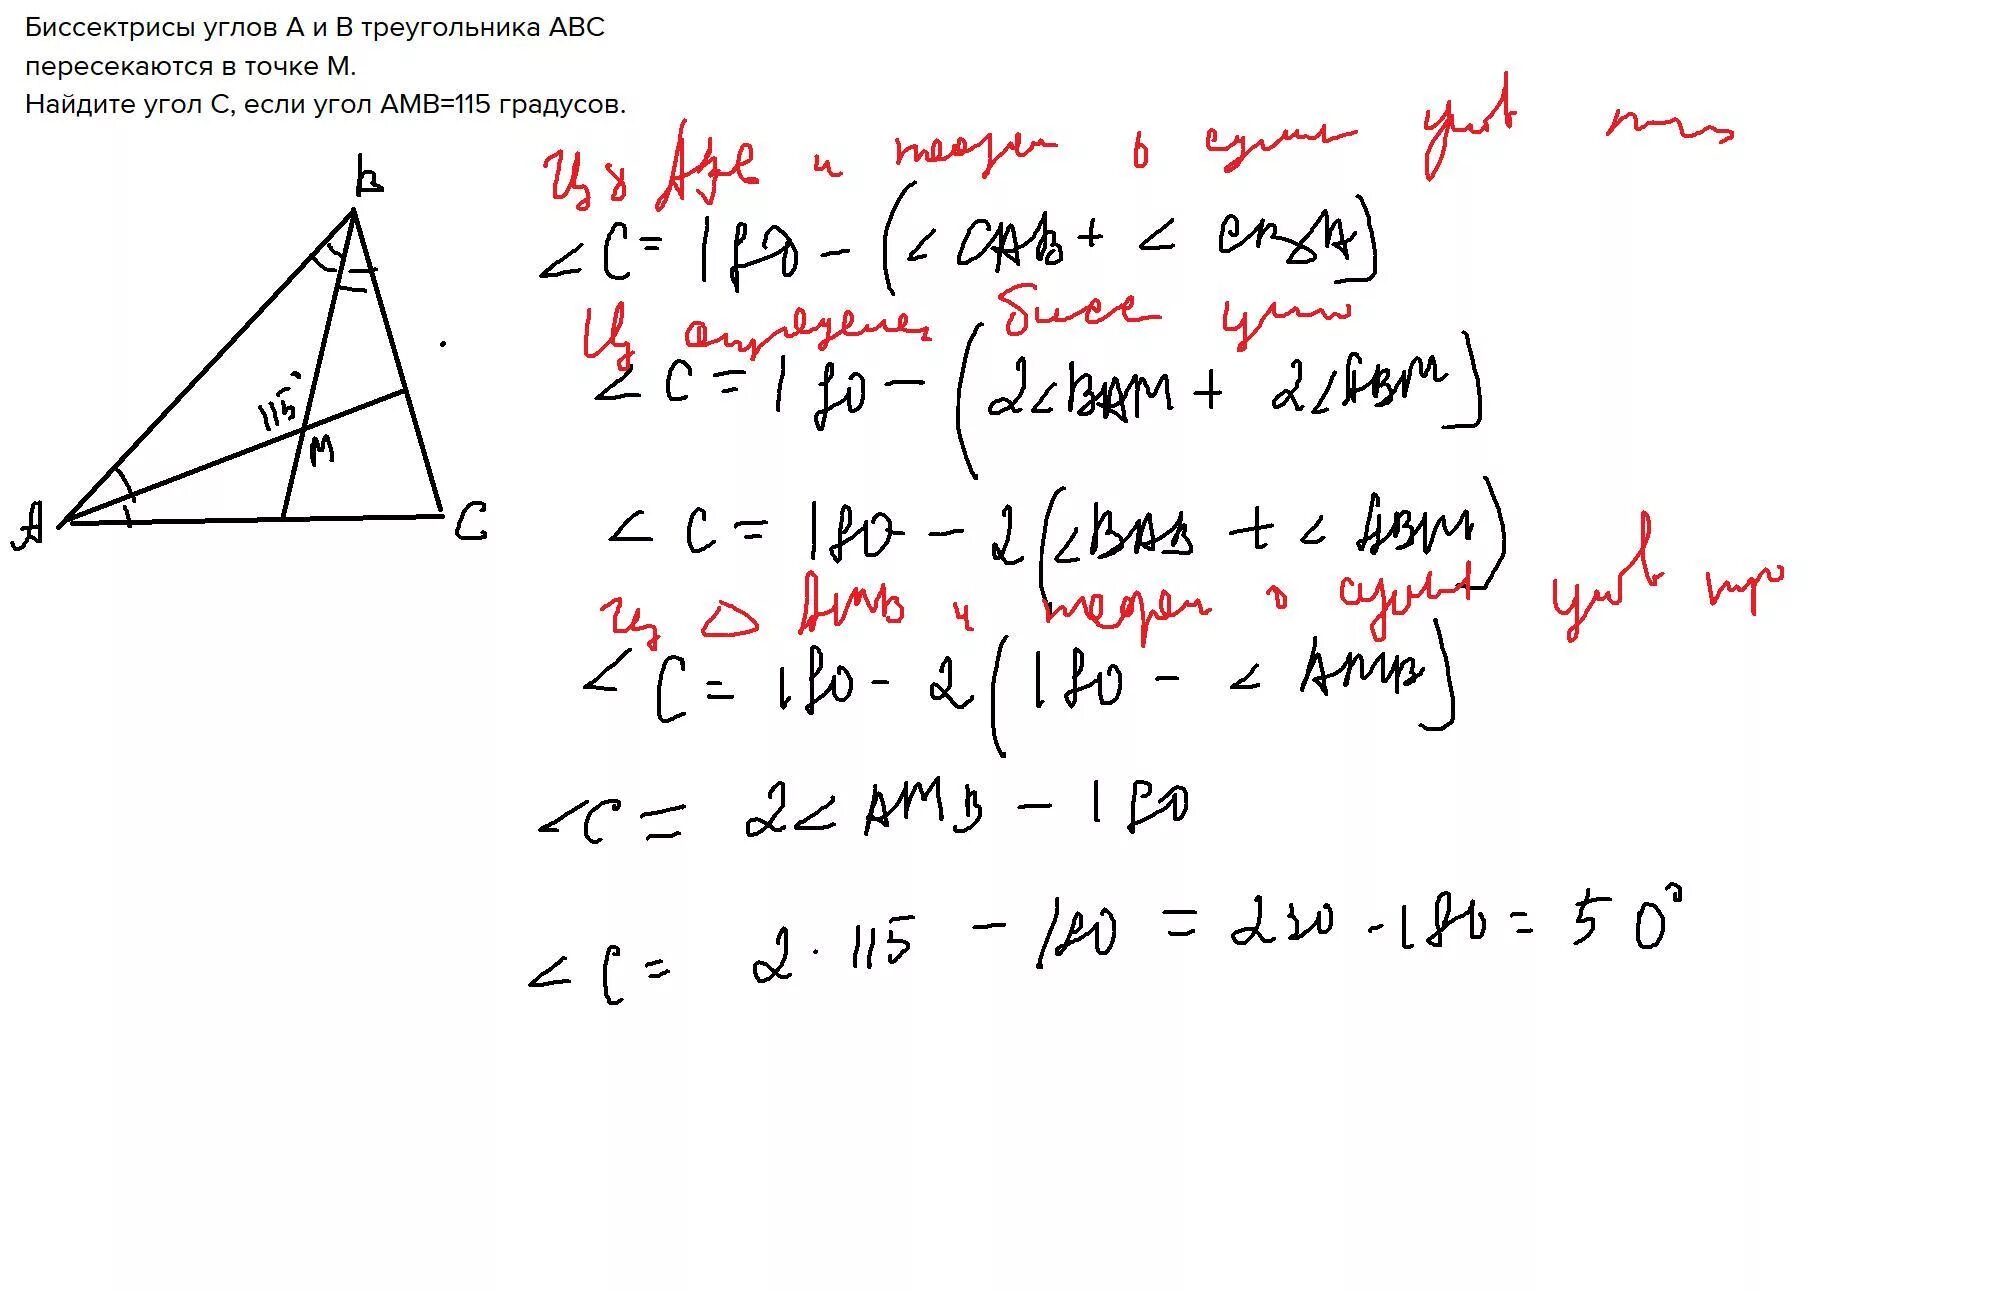 Биссектрисы углов А и В треугольника АВС
пересекаются в точке М.
Найдите угол С, если угол АМВ=115 градусов.
B
115°
M
A
C
Из ABC и теорем о сумм
∠C = 180 - (∠CAB + ∠CBA)
Из определен бисс угла
∠C = 180 - (2∠BAM + 2∠ABM)
∠C = 180 - 2(∠BAB + ∠ABM)
Из △ AMB и теорем о сумм углов тр
∠C = 180 - 2(180 - ∠AMB)
∠C = 2∠AMB - 180
∠C = 2·115 - 180 = 230 - 180 = 50°